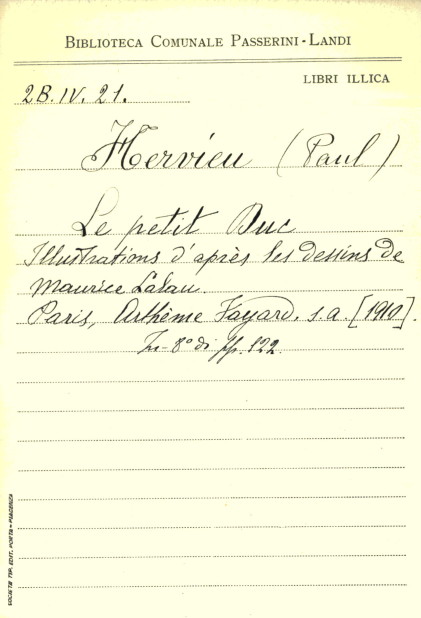 BIBLIOTECA COMUNALE PASSERINI-LANDI
LIBRI ILLICA
2B.IV.21.
Hervieu (Paul)
Le petit Duc
Illustrations d'après les dessins de
Maurice Lalau
Paris, Arthème Fayard. s.a. [1910].
In-8° di pp. 122.
SOCIETÀ TIP. EDIT. PORTA - PIACENZA